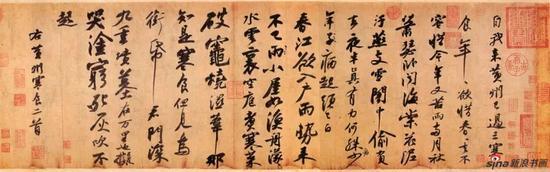 自我来黄州已過三寒
食年〻欲惜春〻去不
容惜今年又苦雨兩月秋
蕭瑟卧聞海棠花泥
汙燕支雪闇中偷負
去夜半真有力何殊少
年子病起頭已白
春江欲入户雨勢来
不已雨小屋如漁舟濛〻
水雲裏空庖煑寒菜
破竈燒濕葦那
知是寒食但見烏
銜帋君門深
九重墳墓在万里也擬
哭塗窮死灰吹不
起
右黄州寒食二首
sina新浪书画